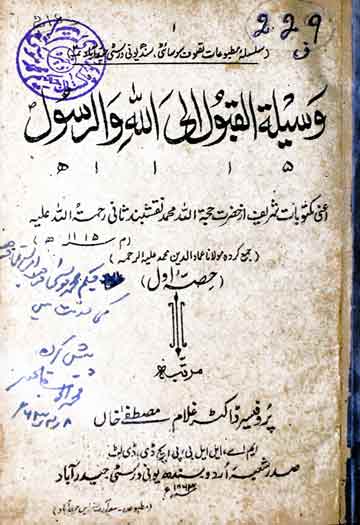 ۱
229
(سلسلہ مطبوعات تصوف سوسائٹی، سندھ یونی ورسٹی حیدرآباد
وَسیلۃ القبُول اِلی اللّٰہِ وَالرسُول
۱۱۱۵ھ
اعنی مکتوبات شریف از حضرت حجۃ اللہ محمد نقشبند ثانی رحمۃ اللہ علیہ
(م ۱۱۱۵ھ)
(جمع کردہ مولانا عماد الدین محمد علیہ الرحمہ)
(حصہ اول)
کی خدمت میں
پیش کردہ
مرتبہ
پروفیسر ڈاکٹر غلام مصطفےٰ خاں
ایم اے، ایل ایل بی، پی ایچ ڈی، ڈی لٹ
صدر شعبۂ اردو سندھ یونی ورسٹی حیدرآباد